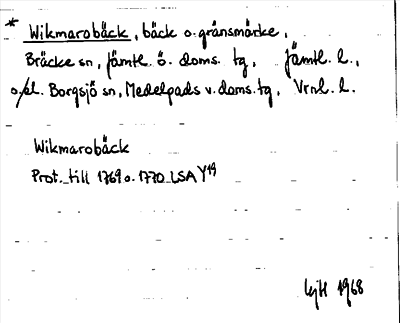 * Wikmarobäck, bäck o. gränsmärke,
Bräcke sn, Jämtl. ö. doms. tg, Jämtl. l.,
o/el. Borgsjö sn, Medelpads v. doms. tg, Vrnl. l.
Wikmarobäck
Prot. till 1769 o. 1770 LSA Y19
1968